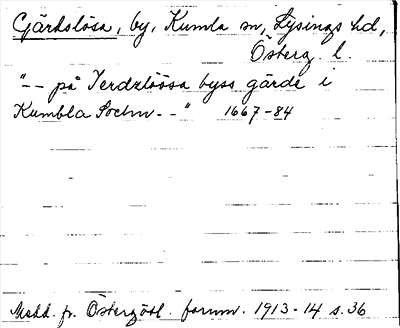 Gärdslösa, by, Kumla sn, Lysings hd,
Österg. l.
"-- på Jerdzlöösa byss gärde i
Kumbla Sochn--" 1667-84
Medd. fr. Östergötl. fornm. 1913-14 s. 36